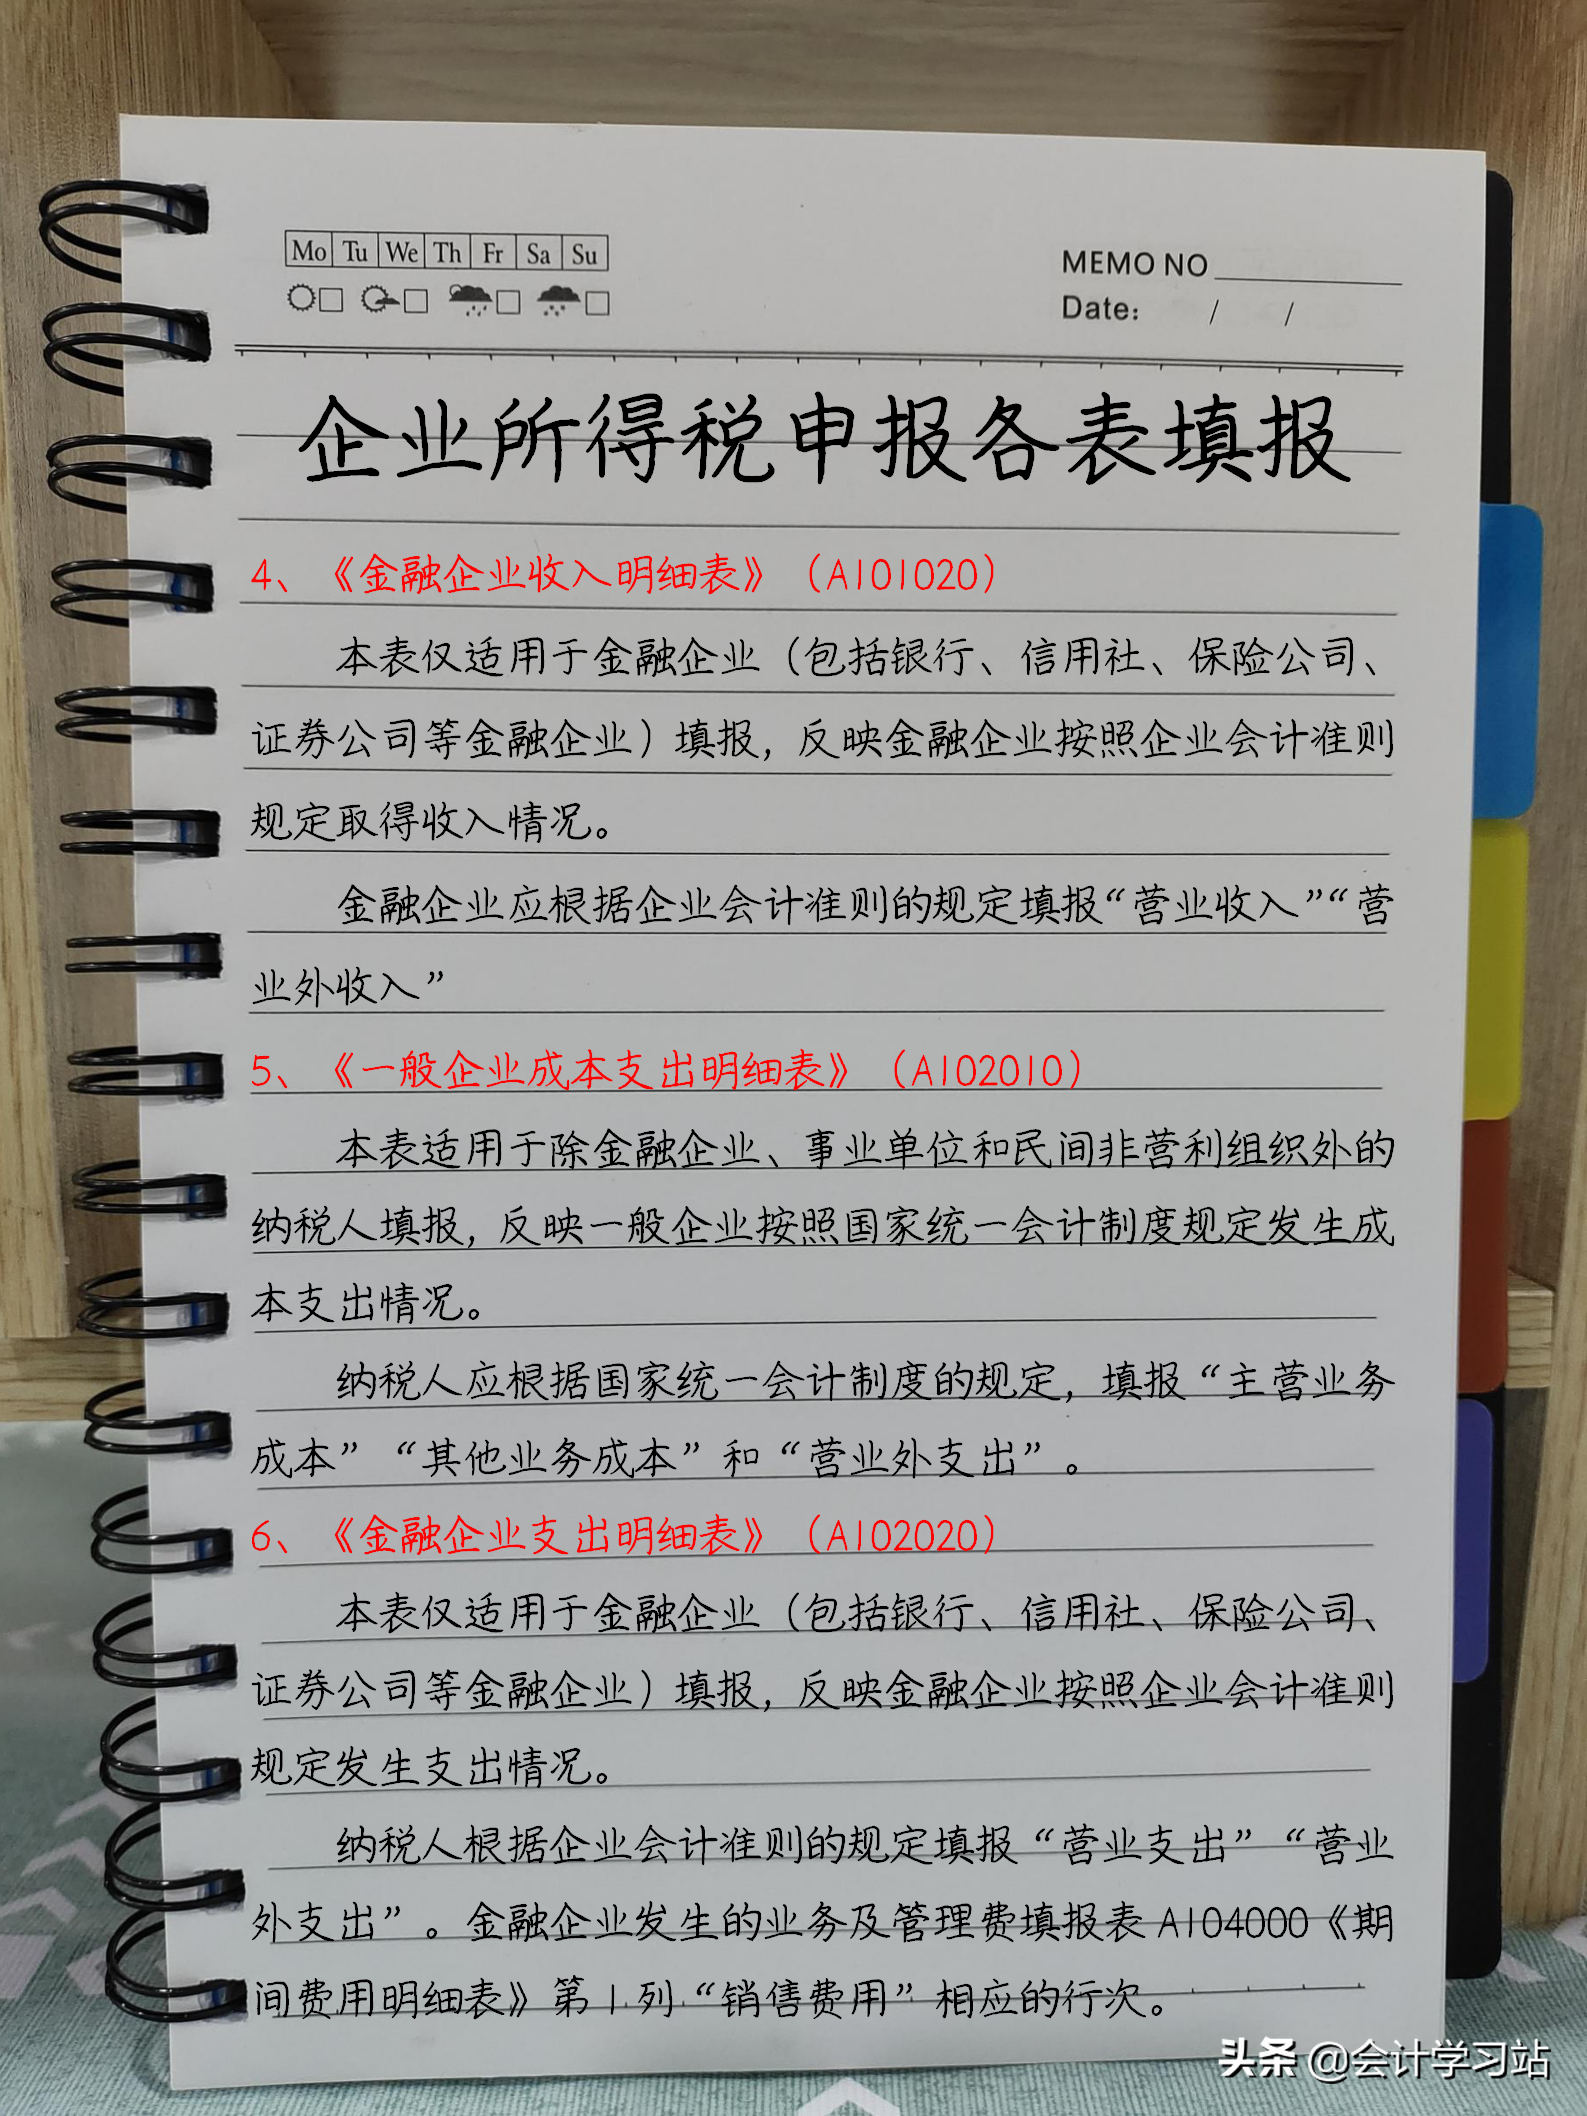 Mo Tu We Th Fr Sa Su
MEMO NO
Date: / /
企业所得税申报各表填报
4、《金融企业收入明细表》（A101020）
本表仅适用于金融企业（包括银行、信用社、保险公司、
证券公司等金融企业）填报，反映金融企业按照企业会计准则
规定取得收入情况。
金融企业应根据企业会计准则的规定填报“营业收入”“营
业外收入”
5、《一般企业成本支出明细表》（A102010）
本表适用于除金融企业、事业单位和民间非营利组织外的
纳税人填报，反映一般企业按照国家统一会计制度规定发生成
本支出情况。
纳税人应根据国家统一会计制度的规定，填报“主营业务
成本”“其他业务成本”和“营业外支出”。
6、《金融企业支出明细表》（A102020）
本表仅适用于金融企业（包括银行、信用社、保险公司、
证券公司等金融企业）填报，反映金融企业按照企业会计准则
规定发生支出情况。
纳税人根据企业会计准则的规定填报“营业支出”“营业
外支出”。金融企业发生的业务及管理费填报表A104000《期
间费用明细表》第1列“销售费用”相应的行次。
头条 @会计学习站